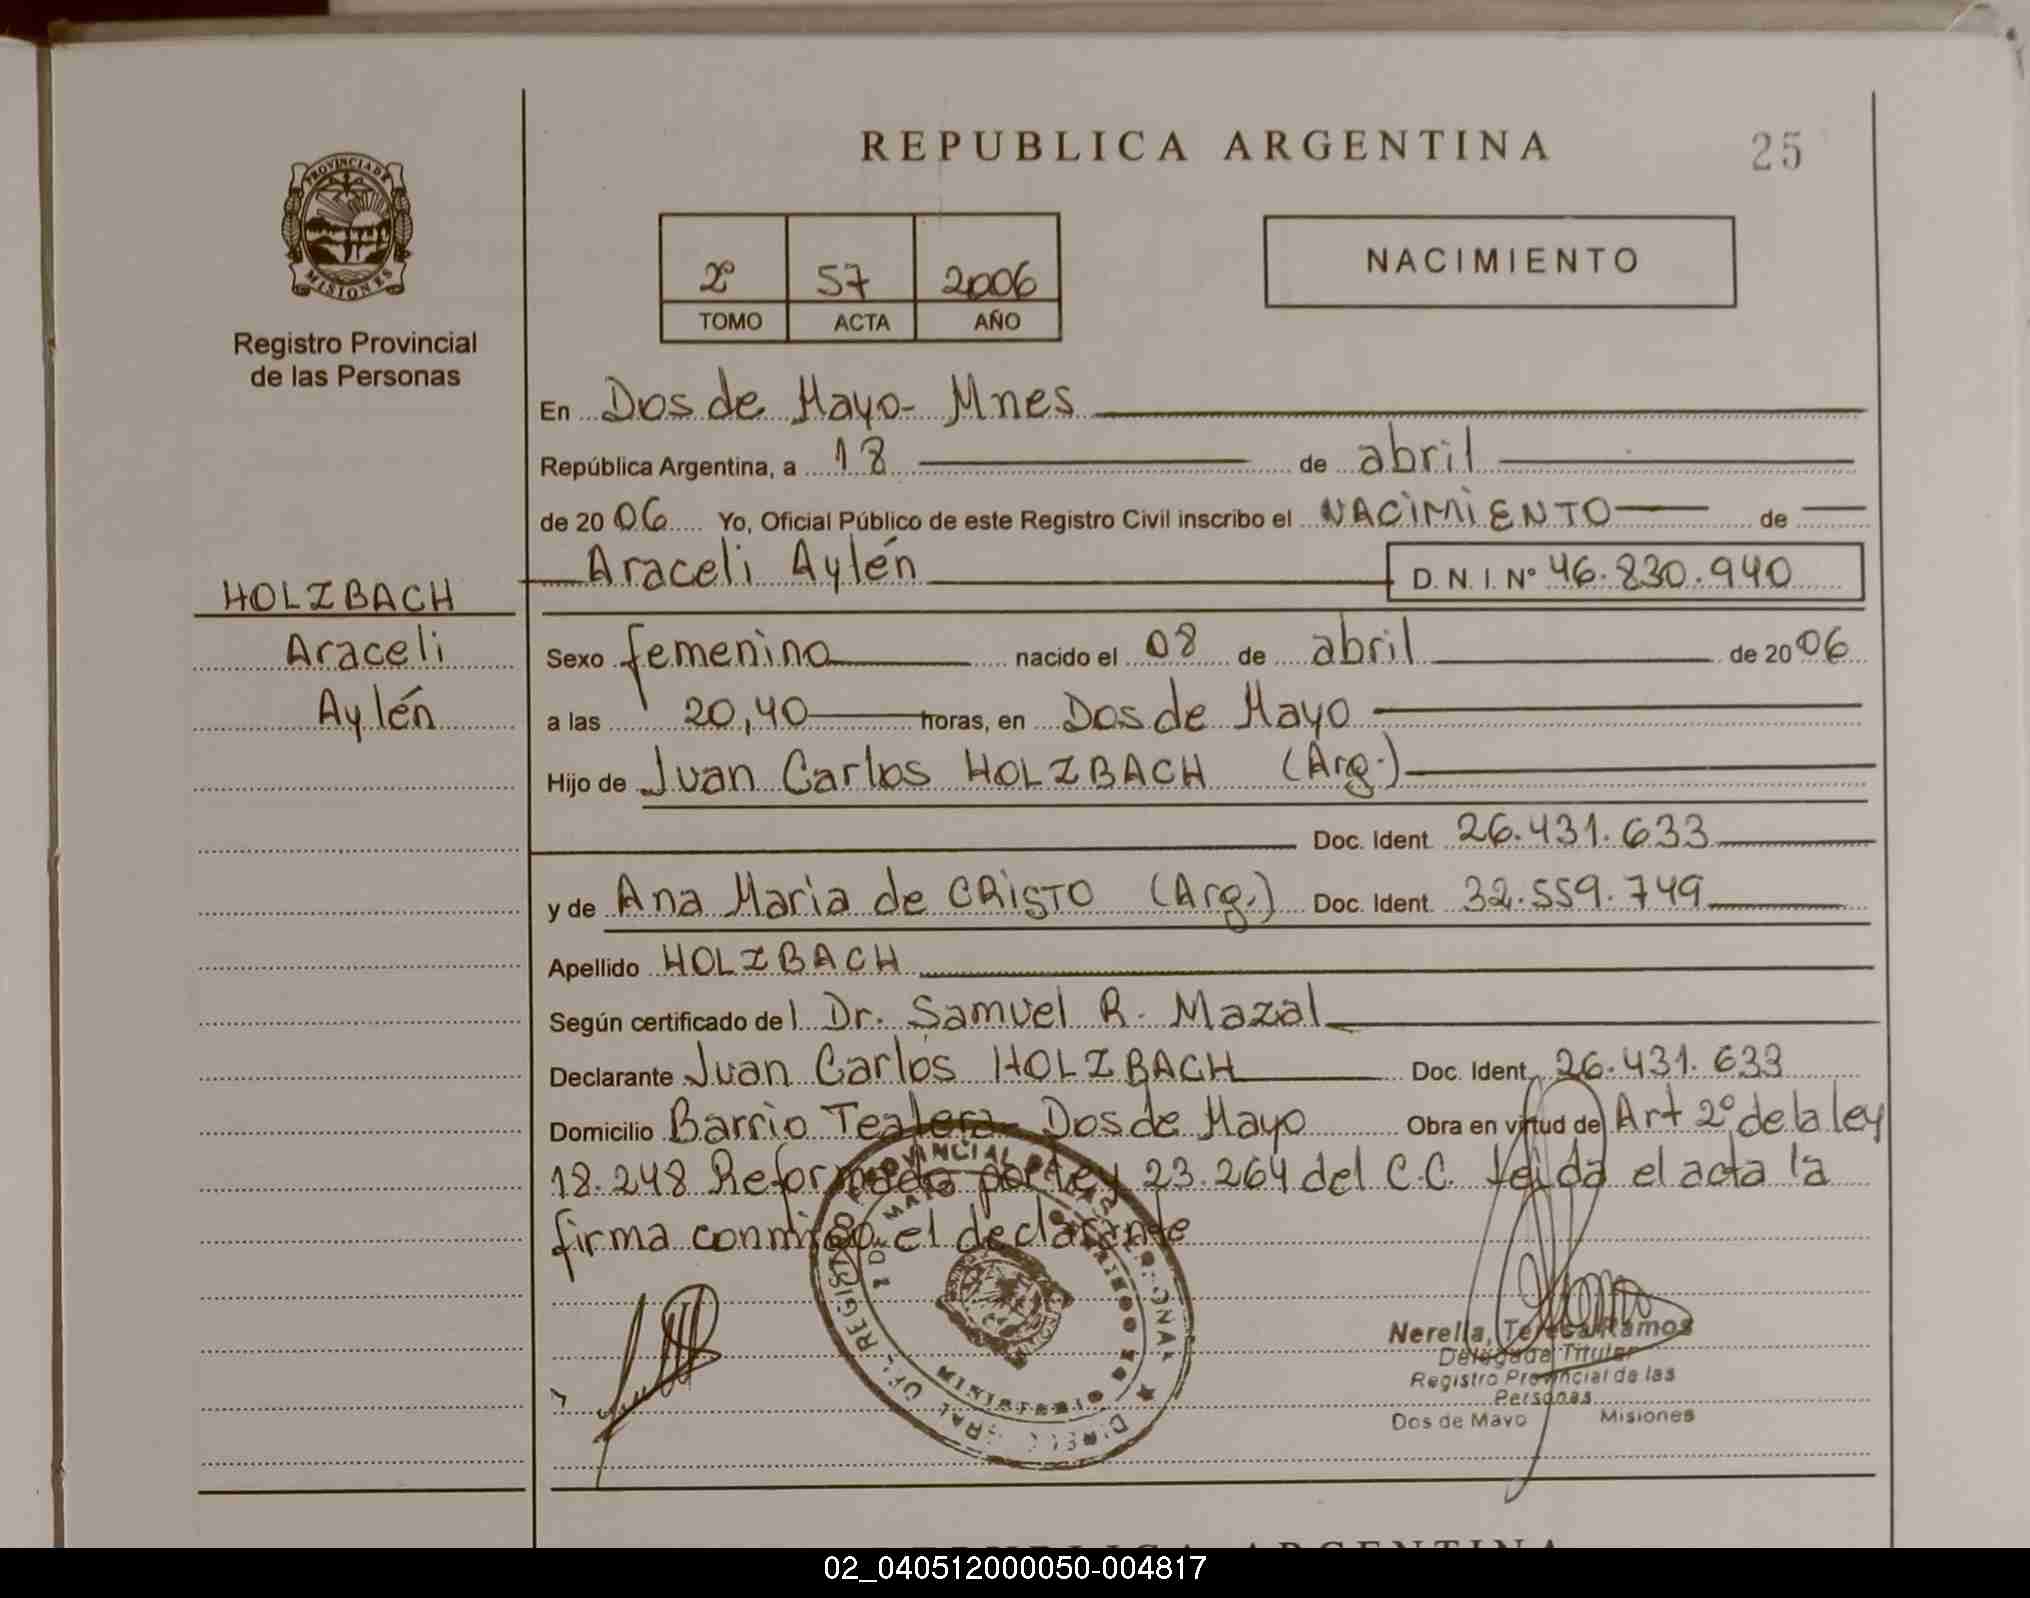 REPUBLICA ARGENTINA
25
PROVINCIA DE
MISIONES
Registro Provincial
de las Personas
2º 57 2006
TOMO ACTA AÑO
NACIMIENTO
En Dos de Mayo - Mnes
República Argentina, a 18 de abril
de 2006 Yo, Oficial Público de este Registro Civil inscribo el NACIMIENTO de
Araceli Aylén D.N.I. Nº 46.830.940
HOLZBACH
Araceli
Aylén
Sexo femenino nacido el 08 de abril de 2006
a las 20,40 horas, en Dos de Mayo
Hijo de Juan Carlos HOLZBACH (Arg.)
Doc. Ident. 26.431.633
y de Ana Maria de CRISTO (Arg.) Doc. Ident. 32.559.749
Apellido HOLZBACH
Según certificado del Dr. Samuel R. Mazal
Declarante Juan Carlos HOLZBACH Doc. Ident. 26.431.633
Domicilio Barrio Tealera - Dos de Mayo Obra en virtud de Art 2º de la ley
18.248 Reformada por ley 23.264 del C.C. leida el acta la
firma conmigo el declarante
Nerella, Teresa Ramos
Delegada Titular
Registro Provincial de las
Personas
Dos de Mayo Misiones
REPUBLICA ARGENTINA
02_040512000050-004817